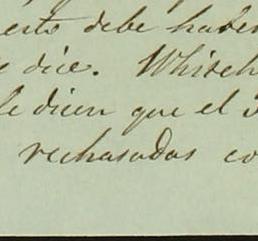 esto debe haber
e dice. Whiteh
le dicen que el 3
rechasadas co